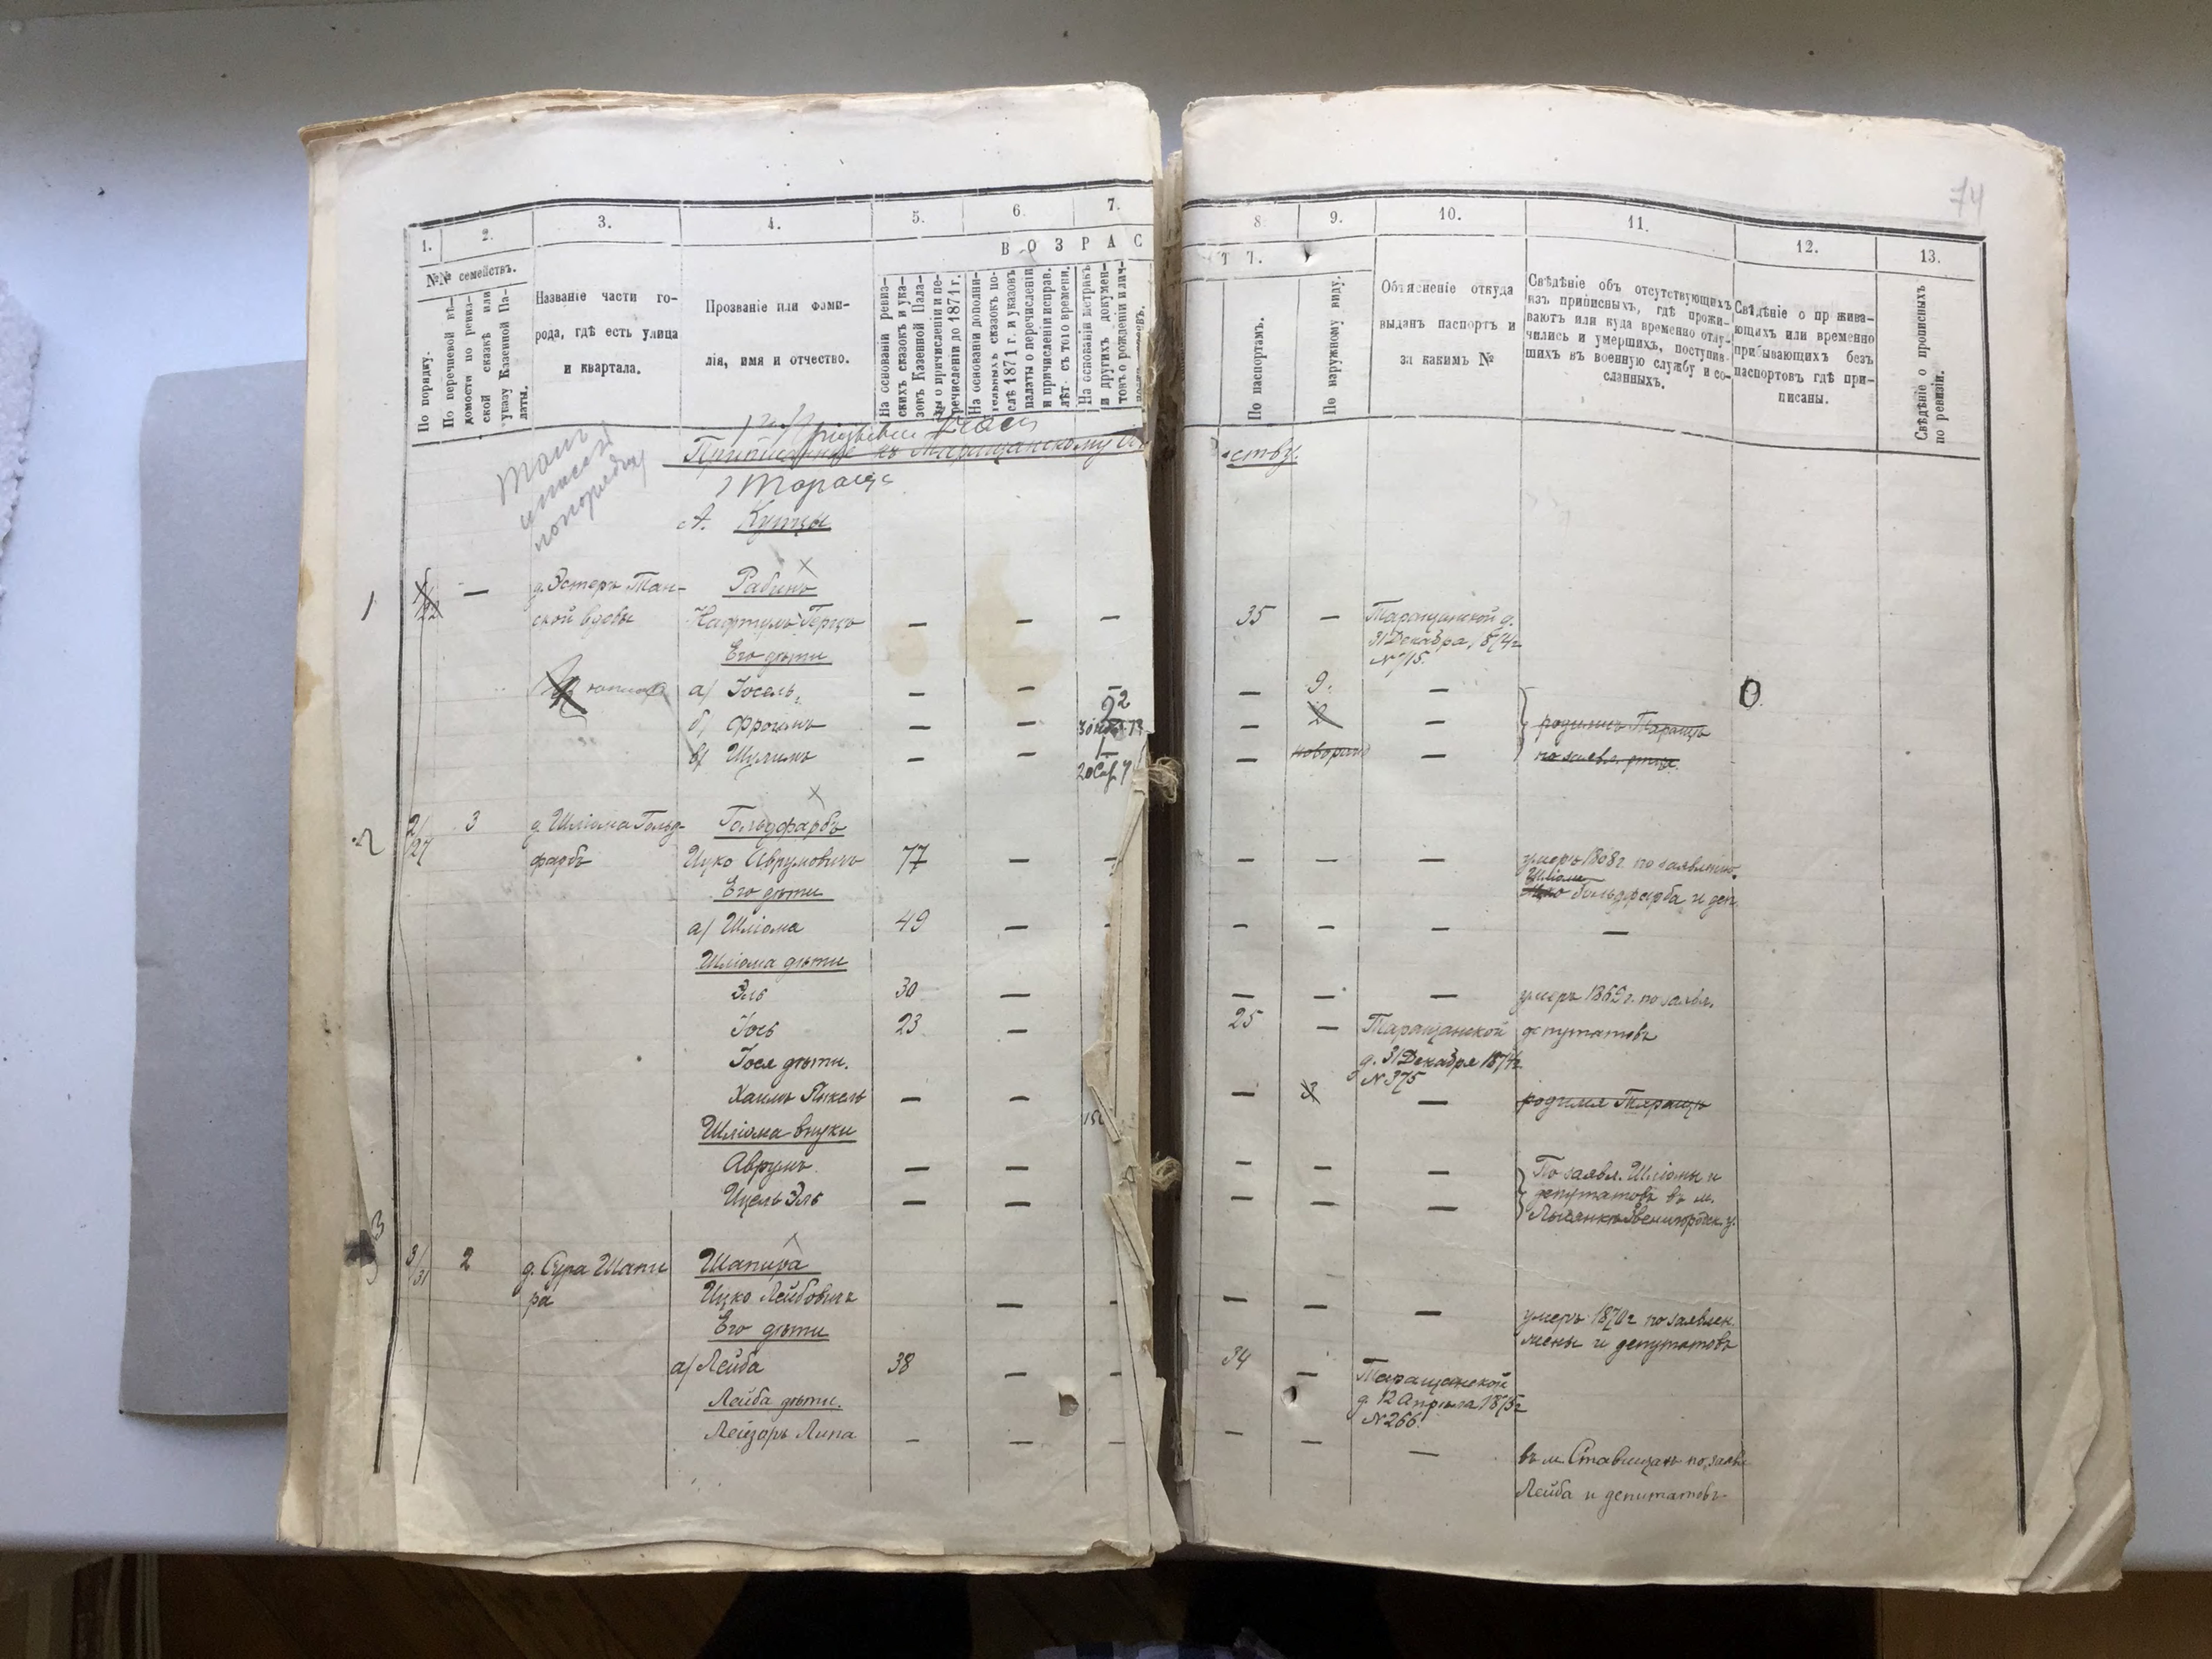 74
1. 2. 3. 4. 5. 6. 7. 8. 9. 10. 11. 12. 13.
№№ семействъ.
В О З Р А С Т 7.
По порядку.
По перечневой вѣ-
домости по ревиз-
ской сказкѣ или
указу Казенной Па-
латы.
Названіе части го-
рода, гдѣ есть улица
и квартала.
Прозваніе или фами-
лія, имя и отчество.
На основаніи Ревиз-
скихъ сказокъ и ука-
зовъ Казенной Пала-
ты о причисленіи и пе-
речисленіи до 1871 г.
На основаніи дополни-
тельныхъ сказокъ по-
слѣ 1871 г. и указовъ
палаты о перечисленіи
и причисленіи исправ.
лѣт. съ того времени.
На основаніи метрикъ
и другихъ докумен-
товъ о рожденіи и лич-
По паспортамъ.
По наружному виду.
Объясненіе откуда
выданъ паспортъ и
за какимъ №
Свѣдѣніе объ отсутствующихъ
изъ приписныхъ, гдѣ прожи-
ваютъ или куда временно отлу-
чились и умершихъ, поступив-
шихъ въ военную службу и со-
сланныхъ.
Свѣдѣніе о прожива-
ющихъ или временно
прибывающихъ безъ
паспортовъ гдѣ при-
писаны.
Свѣдѣніе о прописныхъ
по ревизіи.
Приписанные къ Таращанскому Об
ству.
Тараща
А. Купцы
1 — д. Эстеръ Тан- Рабинъ
ской вдовы Нафтуль Герцъ — — — 35 — Таращанской д.
31 Декабря 1874 г.
№ 715.
Его дѣти
а/ Іосель — — — — 9. — 0
б/ Фроимъ — — — — родились Тараще
в/ Шулимъ — — — новорожд —
2 2/27 3 д. Шліома Гольд- Гольдфарбъ
фарбъ Ицко Аврумовичъ 77 — — — — — умеръ 1868 г. по заявленію
Шліомы
Гольдфарба и деп.
Его дѣти
а/ Шліома 49 — — — — — —
Шліома дѣти
Эль 30 — — — — умеръ 1869 г. по заявл.
депутатовъ
Іось 23 — 25 — Таращанской
д. 31 Декабря 1874 г.
№ 375
Іося дѣти.
Хаимъ Янкель — — — — родился Тараще
Шліома внуки
Аврумъ — — — — — По заявл. Шліомы и
Ицель Эль — — — — — депутатовъ въ м.
Лысянкѣ Звенигородск. у.
3 3/31 2 д. Сура Шапи Шапира
ра Ицко Лейбовичъ — — — — — умеръ 1870 г. по заявлен.
жены и депутатовъ
Его дѣти
а/ Лейба 38 — — 34 — Таращанской
д. 12 Апрѣля 1875 г.
№ 266.
Лейба дѣти.
Лейзоръ Липа — — — — — — въ м. Ставищахъ по заявл
Лейба и депутатовъ